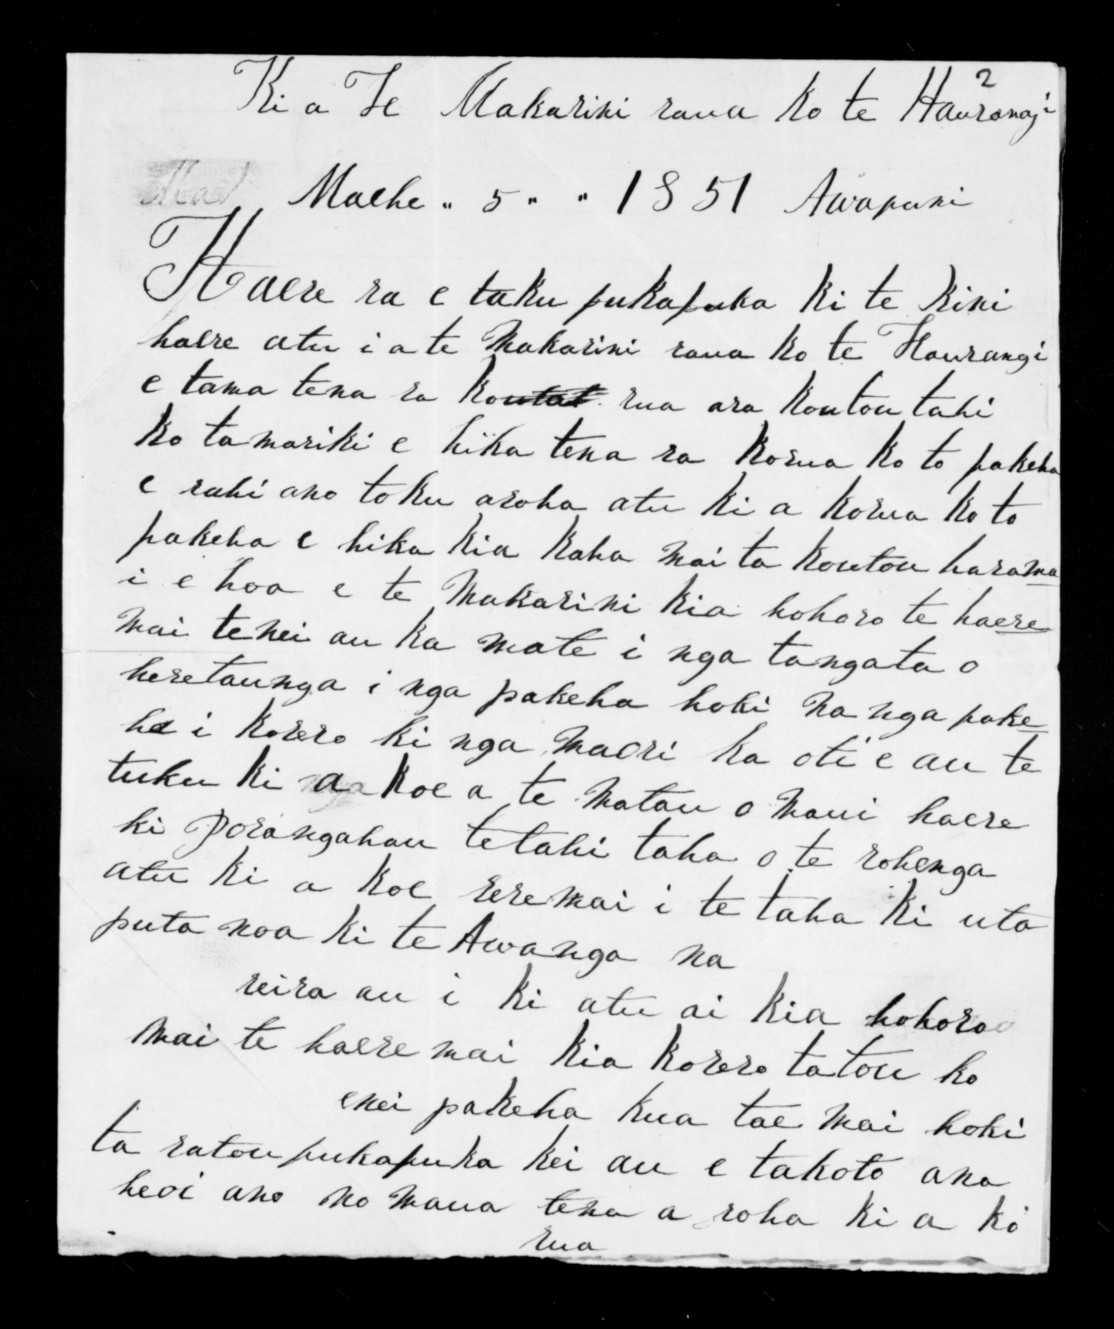 2
Ki a Te Makarini raua ko te Haurangi
Maehe " 5 " " 1851 Awapuni
Haere ra e taku pukapuka ki te Kini
haere atu i a te Makarini raua ko te Haurangi
e tama tena ra ko rua ara koutou tahi
ko tamariki e hika tena ra korua ko to pakeha
e rahi ano toku aroha atu ki a korua ko to
pakeha e hika kia kaha mai ta koutou harama
i e hoa e te Makarini kia hohoro te haere
mai tenei au ka mate i nga tangata o
heretaunga i nga pakeha hoki na nga pake
ha i korero ki nga maori ka oti e au te
tuku ki a koe a te matau o maui haere
ki Porangahau tetahi taha o te rohenga
atu ki a koe rere mai i te taha ki uta
puta noa ki te Awanga na
reira au i ki atu ai kia hohoro
mai te haere mai kia korero tatou ko
enei pakeha kua tae mai hoki
ta ratou pukapuka kei au e takoto ana
heoi ano no maua tena a roha ki a ko
rua